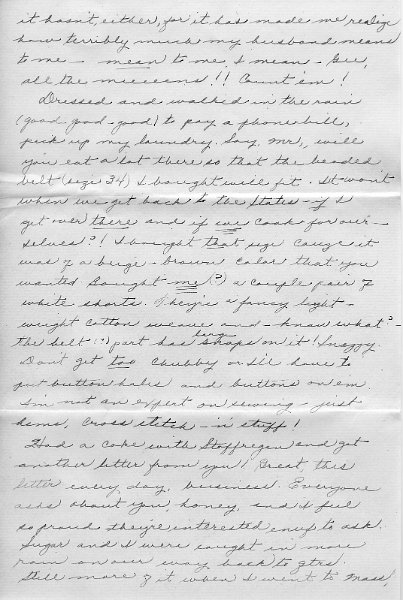 it hasn't, either, for it has made me realize
how terribly much my husband means
to me - mean to me, I mean - Gee,
all the mieeeens!! Count 'em!
Dressed and walked in the rain
(good-good-good) to pay a phone bill,
pick up my laundry. Say, Mr., will
you eat a lot there so that the beaded
belt (size 34) I bought will fit. It won't
when we get back to the States - if I
get over there and if we cook for our-
selves?! I bought that size cause it
was of a beige-brown color that you
wanted. Bought me (?) a couple pair of
white shorts. They're a fancy light-
weight cotton weave and - know what? -
the belt (?) part has snaps on it! Snappy.
Don't get too chubby or I'll have to
put button holes and buttons on em.
I'm not an expert on sewing - just
hems, cross stitch - n stuff!
Had a coke with Stoffregen and got
another letter from you! Great, this
letter every day, business. Everyone
asks about you honey, and I feel
so proud they're interested enuf to ask.
Sugar and I were caught in more
rain on our way back to qtrs.
Still more of it when I went to Mass,